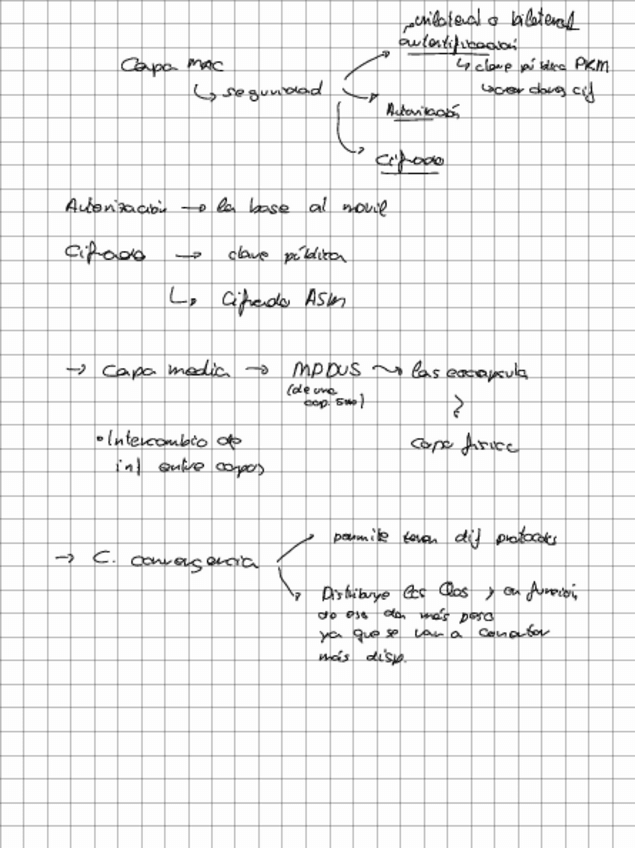 unilateral o bilateral
autentificación
↳ clave pública PKM
↳ crear claves cif
Capa MAC
↳ seguridad
Autorización
Cifrado
Autorización → la base al movil
Cifrado → clave pública
↳ Cifrado ASM
→ Capa media → MPDUS ⇝ las encapsula
(de una
cap. sup)
• Intercambio de
inf entre capas
capa física
→ C. convergencia
permite tener dif protocolos
Distribuye las Qos y en función
de eso dan más peso
ya que se van a conectar
más disp.